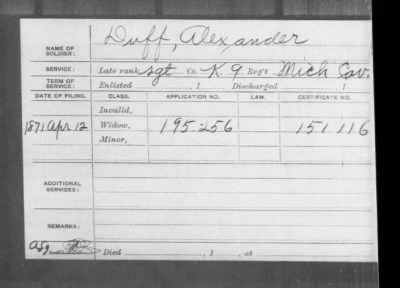 NAME OF SOLDIER: Duff, Alexander
SERVICE: Late rank Sgt Co. K. 9 Reg't Mich Cav.
TERM OF SERVICE: Enlisted , 1 Discharged , 1
DATE OF FILING. CLASS. APPLICATION NO. LAW. CERTIFICATE NO.
Invalid,
1871 Apr 12 Widow, 195.256 151 116
Minor,
ADDITIONAL SERVICES:
REMARKS:
Died , 1 , at